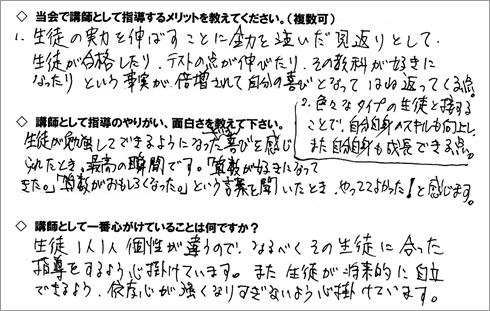 ◇ 当会で講師として指導するメリットを教えてください。（複数可）
1. 生徒の実力を伸ばすことに全力を注いだ見返りとして、
生徒が合格したり、テストの点が伸びたり、その教科が好きに
なったり という事実が、倍増されて自分の喜びとなって はね返ってくる点。
2. 色々なタイプの生徒と接する
ことで、自分自身のスキルも向上し、
また自分自身も成長できる点。
◇ 講師として指導のやりがい、面白さを教えて下さい。
生徒が勉強してできるようになった喜びを感じ
られたとき、最高の瞬間です。「算数が好きになって
きた。」「算数がおもしろくなった。」という言葉を聞いたとき、やっててよかった！と感じます。
◇ 講師として一番心がけていることは何ですか？
生徒1人1人 個性が違うので、なるべく その生徒に合った
指導をするよう心掛けています。また 生徒が将来的に自立
できるよう、依存心が強くなりすぎないよう心掛けています。